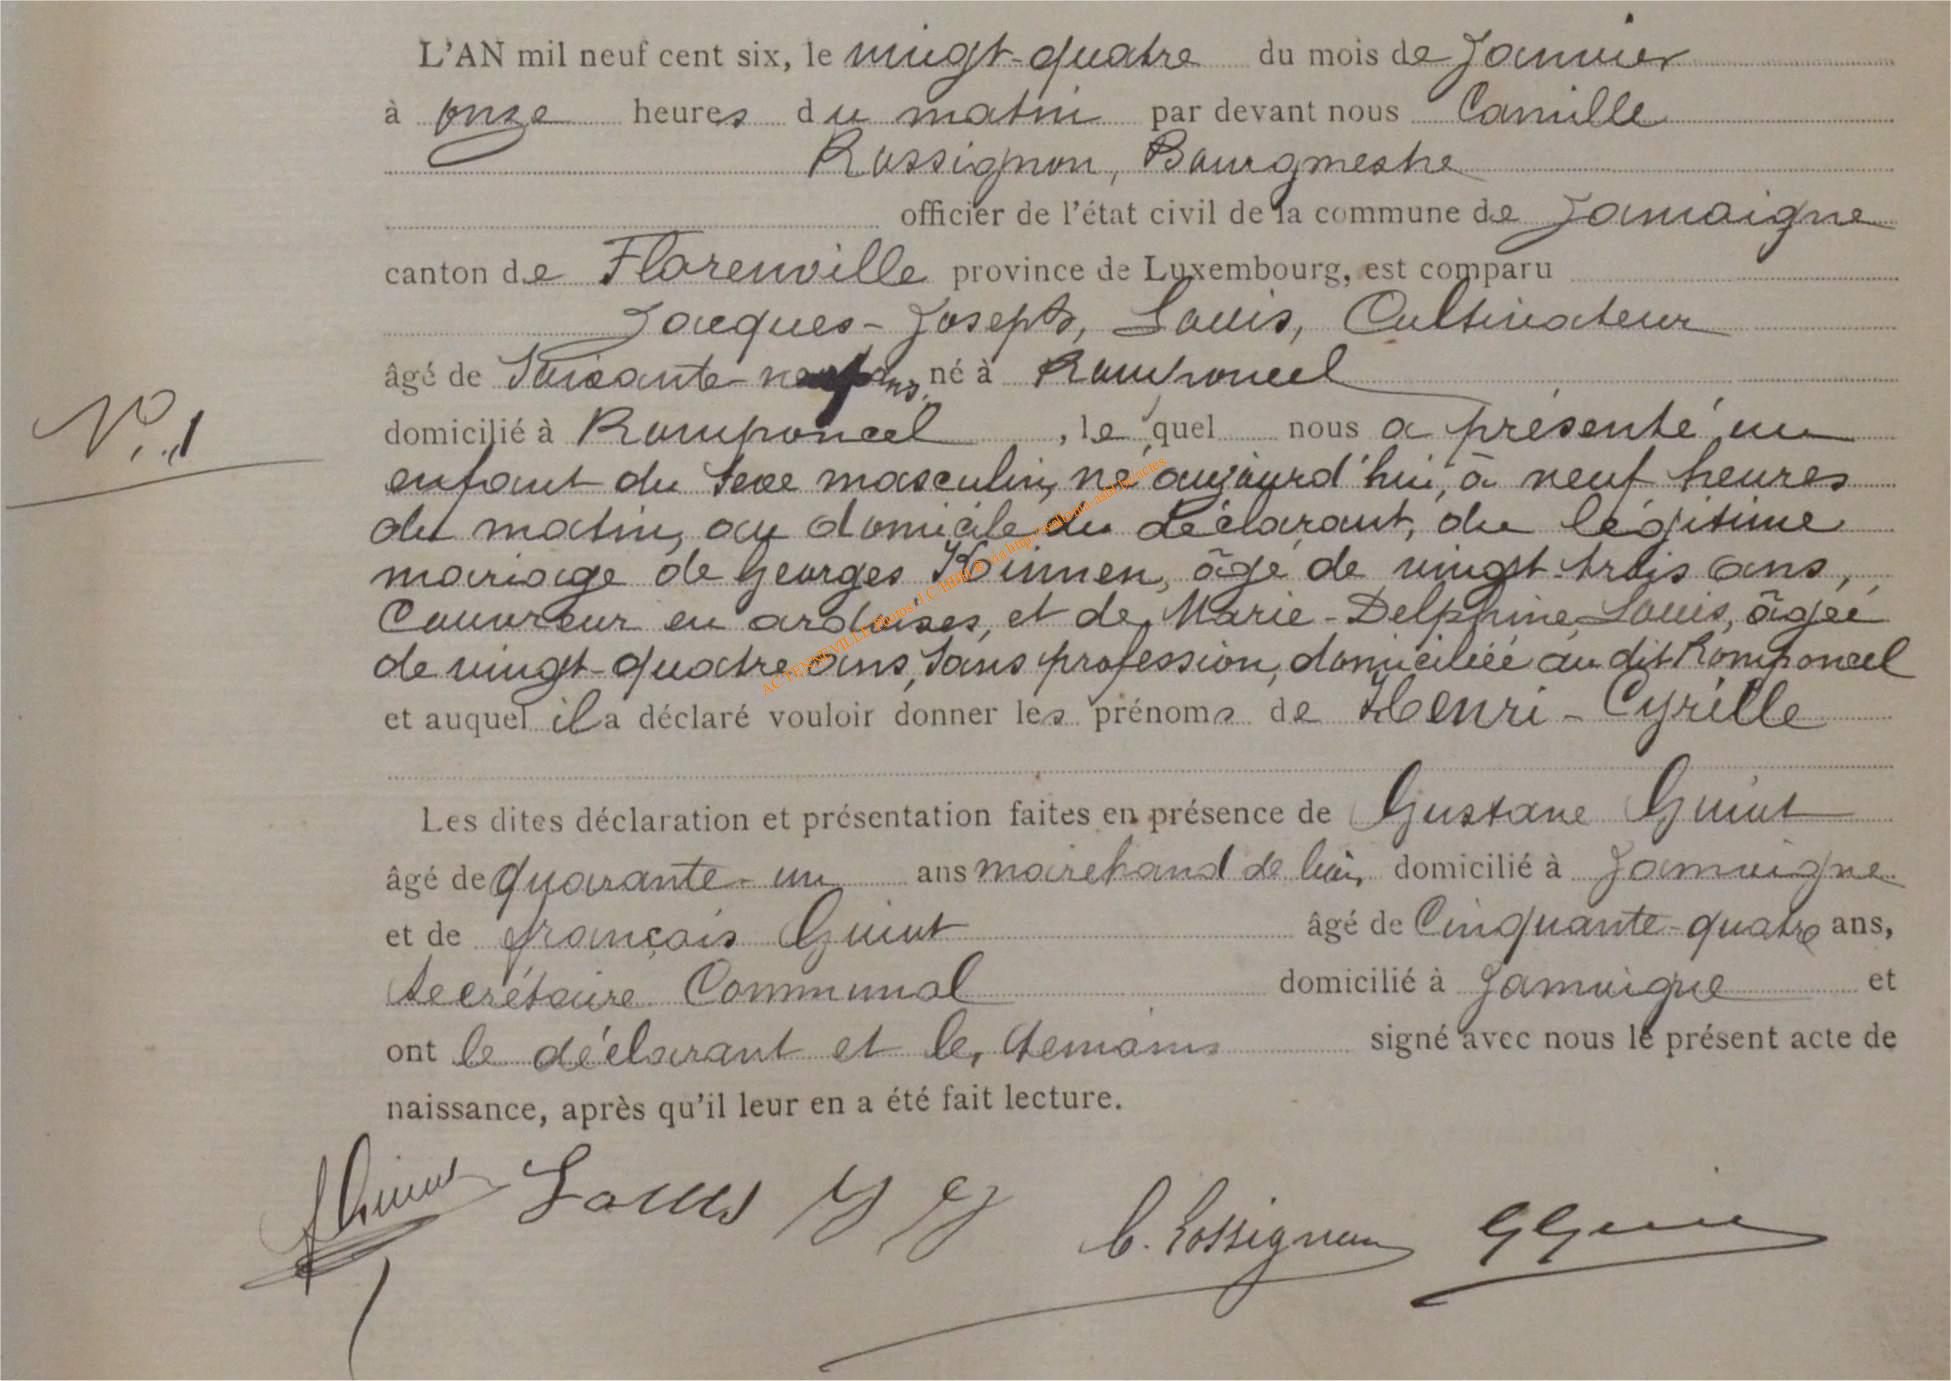 L'AN mil neuf cent six, le vingt-quatre du mois de Janvier
à onze heures du matin par devant nous Camille
Rossignon, Bourgmestre
officier de l'état civil de la commune de Jamoigne
canton de Florenville province de Luxembourg, est comparu
Jacques-Joseph, Louis, Cultivateur
âgé de Soixante-neuf ans, né à Romponcel
N°.1
domicilié à Romponcel, le quel nous a présenté un
enfant du Sexe masculin, né aujourd'hui, à neuf heures
du matin, au domicile du déclarant, du légitime
mariage de Georges Hinnen, âgé de vingt-trois ans,
Couvreur en ardoises, et de Marie-Delphine, Louis, âgée
de vingt-quatre ans, Sans profession, domiciliée au dit Romponcel
et auquel il a déclaré vouloir donner les prénoms de Henri-Cyrille
Les dites déclaration et présentation faites en présence de Gustave Guiot
âgé de quarante-un ans marchand de domicilié à Jamoigne
et de françois Guiot âgé de Cinquante-quatre ans,
Secrétaire Communal domicilié à Jamoigne et
ont le déclarant et les témoins signé avec nous le présent acte de
naissance, après qu'il leur en a été fait lecture.
Louis J J C. Rossignon